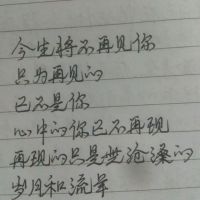 今生将不再见你
只为再见的
已不是你
心中的你已不再现
再现的只是些沧桑的
岁月和流年